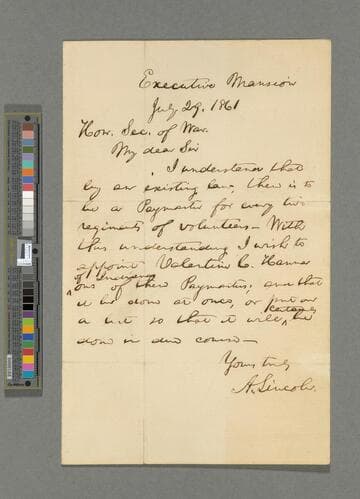 Executive Mansion
July 29. 1861
Hon. Sec. of War.
My dear Sir
I understand that
by an existing law, there is to
be a Paymaster for every two
regiments of volunteers— With
this understanding I wish to
appoint Valentine C. Hanna
of Indiana
one of these Paymasters; and that
it be done at once, or put on
a list so that it will certainly be
done in due course—
Yours truly
A. Lincoln.